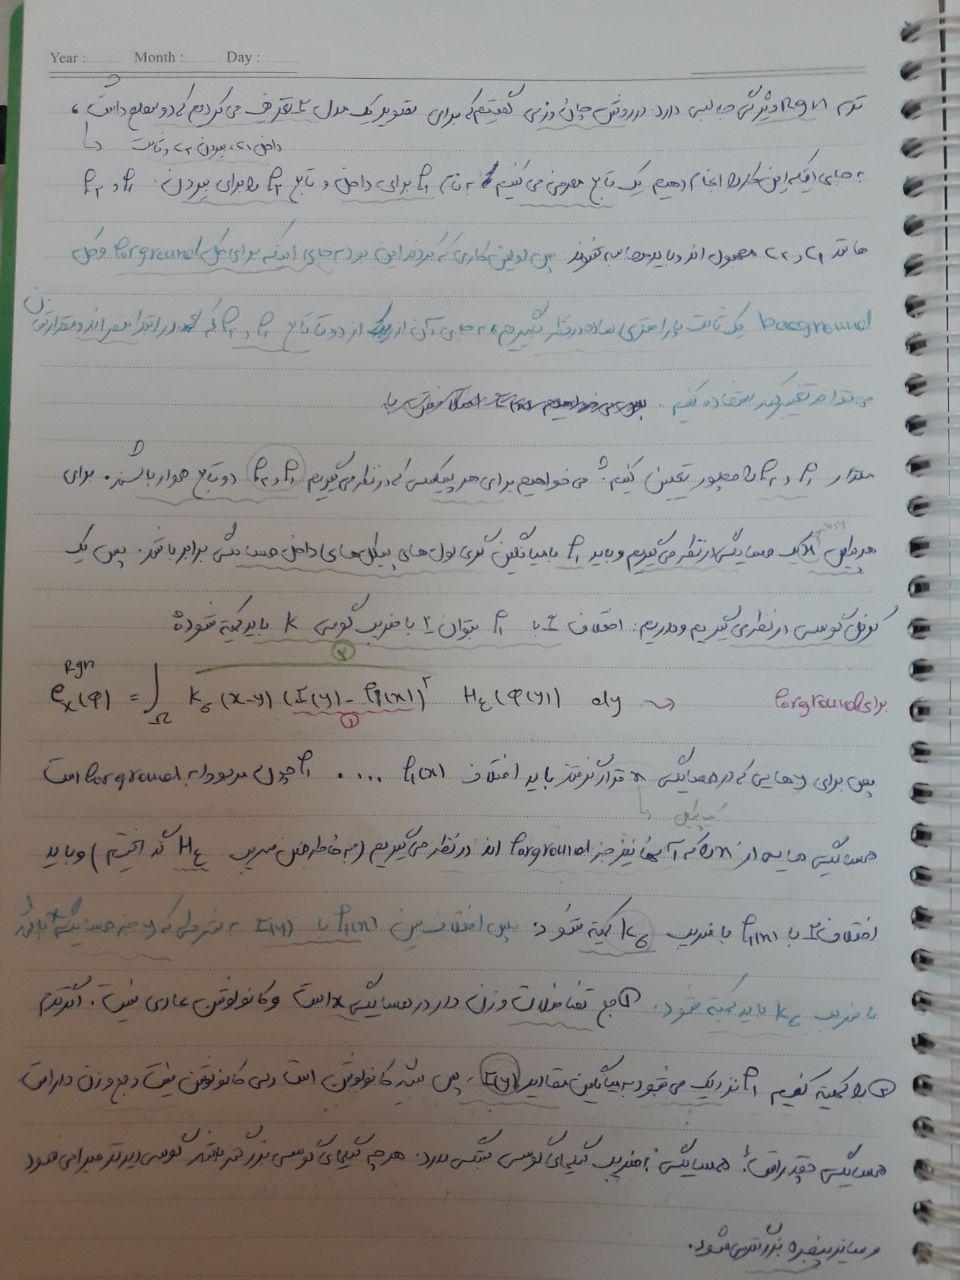 Year : Month : Day :
ترم Rgn ویژگی جالبی دارد. در روش چان وزی گفتیم که برای تصویر یک مدل تعریف می کردیم که دو سطح داشت،
داخل c1، بیرون c2 و ثابت
به جای اینکه این کار را انجام دهیم یک تابع معرفی می کنیم به نام f1 برای داخل و تابع f2 را برای بیرون. f1 و f2
مانند c1 و c2 مجهول اند و باید محاسبه شوند. پس اولین کاری که کردند این بود به جای اینکه برای کل forground و کل
background یک ثابت پارامتری ساده در نظر بگیریم، به جای آن از دو تا تابع f1 و f2 که در ابتدا صفر اند و مقدارشان
می تواند تغییر کند استفاده کنیم.
مقدار f1 و f2 را چطور تعیین کنیم؟ می خواهیم برای هر پیکسلی که در نظر می گیریم f1 و f2 دو تابع هموار باشند. برای
هر پیکسل x یک همسایگی در نظر می گیریم و باید f1 با میانگین گری لول های پیکسل های داخل همسایگی برابر باشد. پس یک
کرنل گوسی در نظر می گیریم و داریم: اختلاف I با f1 بتوان ۲ با ضریب گوسی k باید کمینه شود
۲
Rgn
e_x(φ) = ∫_Ω k_σ(x-y) (I(y) - f1(x))² H_ε(φ(y)) dy ⇝ برای forground
①
پس برای y هایی که در همسایگی x قرار گرفتند باید اختلاف f1(x) .... f1 چون مربوط به forground است
یک پیکسل
همسایگی هایی از x را که آنها نیز جزء forground اند در نظر می گیریم (به خاطر همین ضریب H_ε گذاشتیم) و باید
اختلاف I با f1(x) با ضریب k_σ کمینه شود. پس اختلاف بین f1(x) با I(y) به شرطی که y جزء همسایگی x باشد
با ضریب k_σ باید کمینه شود. ① جمع تفاضلات وزن دار در همسایگی x است و کانولوشن عادی نیست. اگر ترم
① را کمینه کنیم f1 نزدیک می شود به میانگین مقادیر I(y). پس شبیه کانولوشن است ولی کانولوشن نیست و جمع وزن دار است
همسایگی چقدر است؟ همسایگی به ضریب سیگمای گوسی بستگی دارد. هر چه سیگمای گوسی بزرگتر باشد گوسی دیرتر میرا می شود
و سایز پنجره بزرگتر می شود.